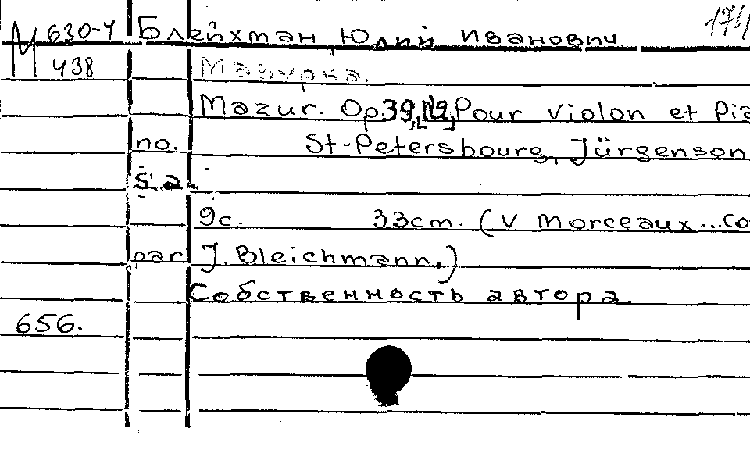 М 630-4 Блейхман, Юлий Иванович
438 Мазурка.
Mazur. Op 39, Pour violon et
no. St-Petersbourg, Jürgenson
s.a.
9c. 33cm. (V Morceaux...
par J. Bleichmann.)
Собственность автора
656.